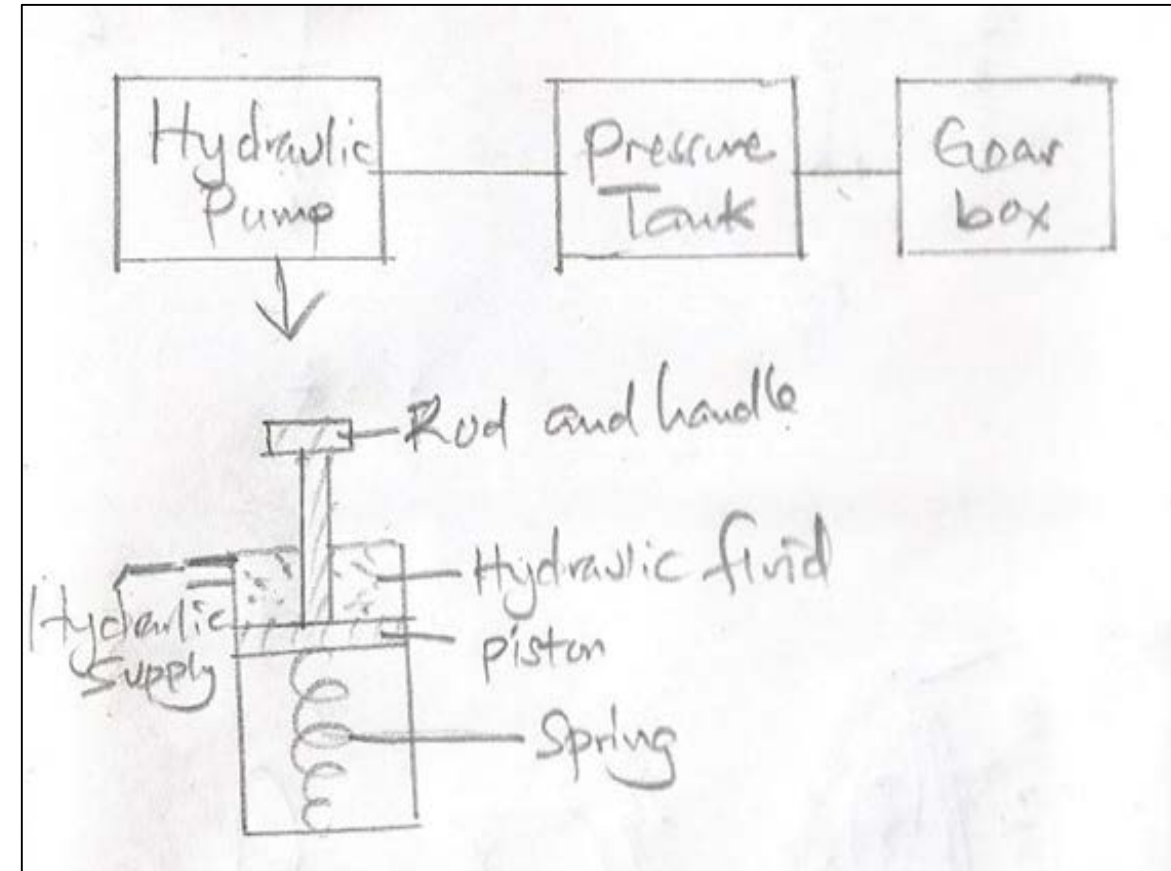 Hydraulic
Pump
Pressure
Tank
Gear
box
Rod and handle
Hydraulic fluid
piston
Hydraulic
Supply
Spring